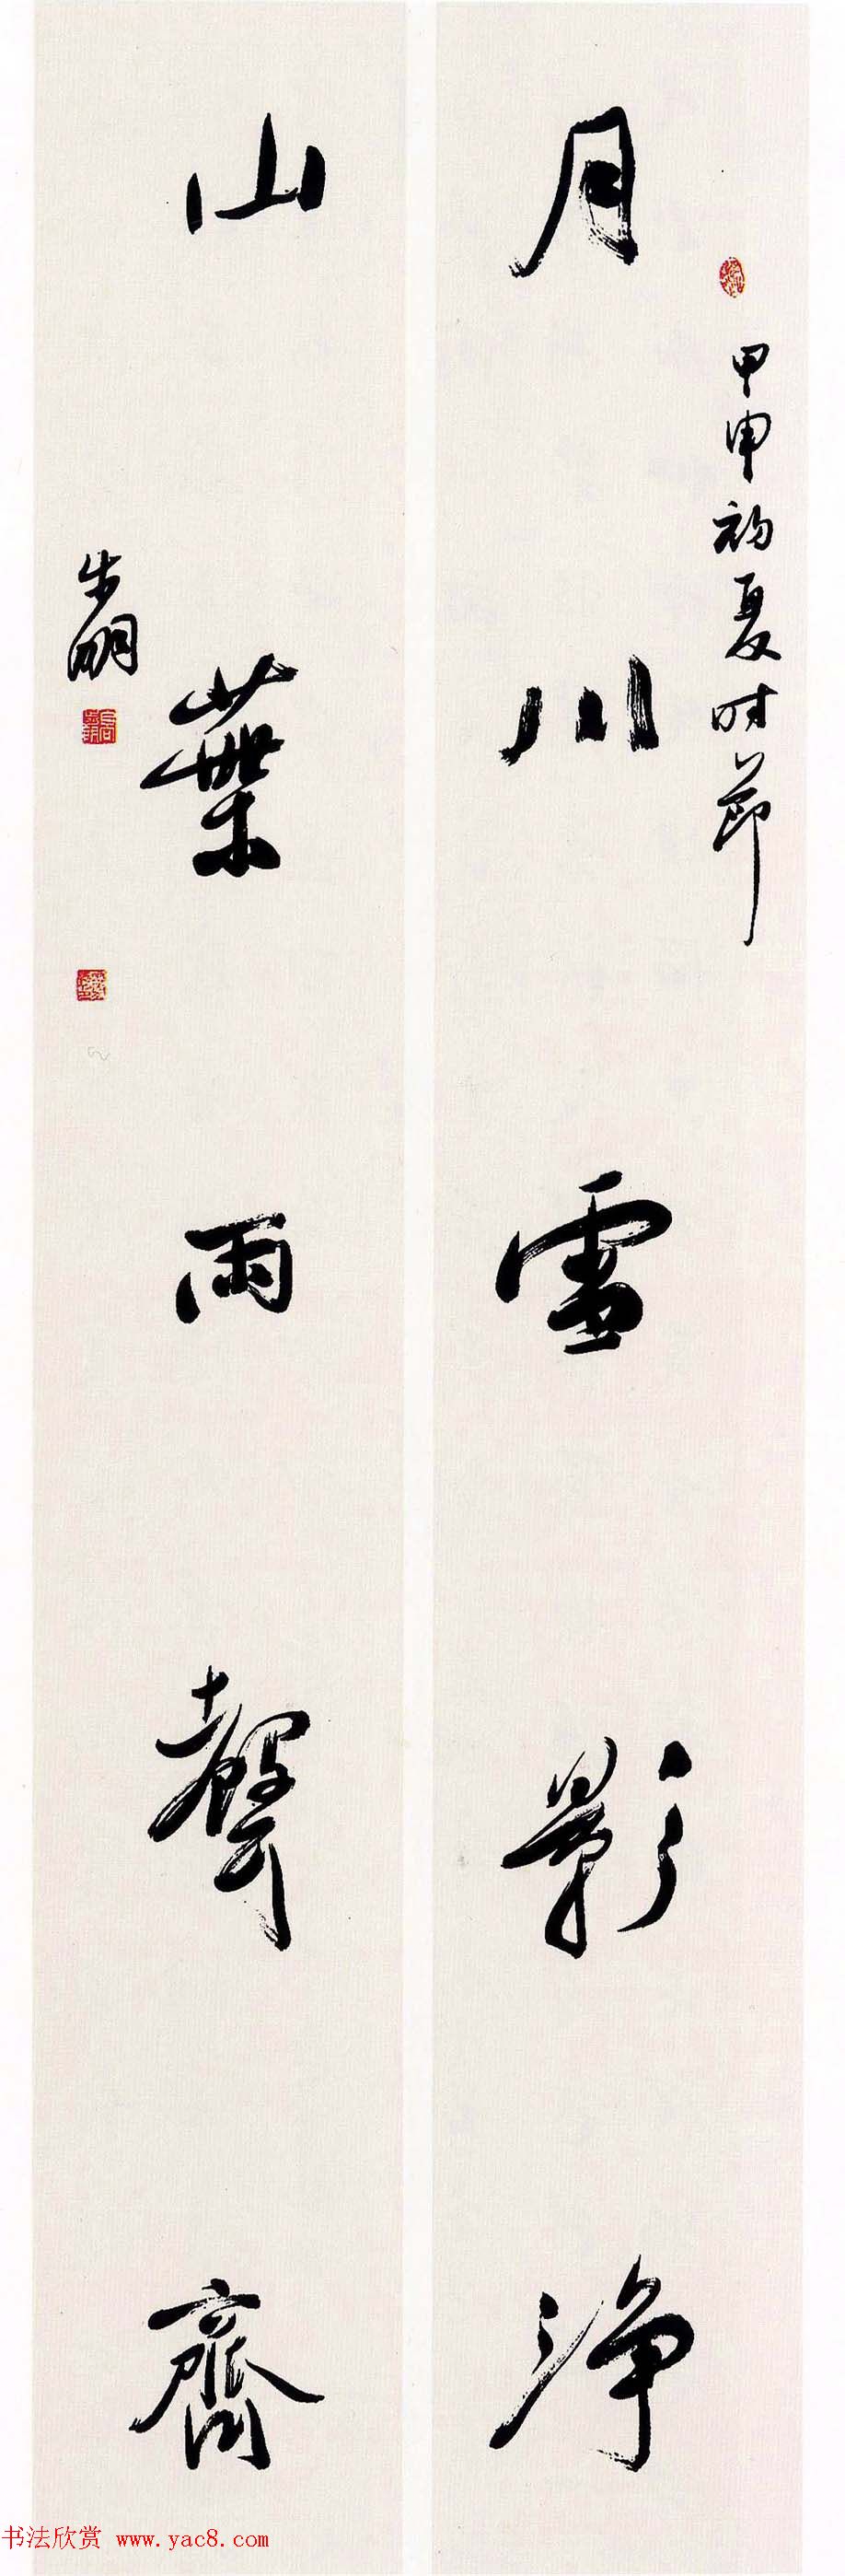 月川雪影净
甲申初夏时节
山葉雨聲齊
朱明
书法欣赏 www.yac8.com